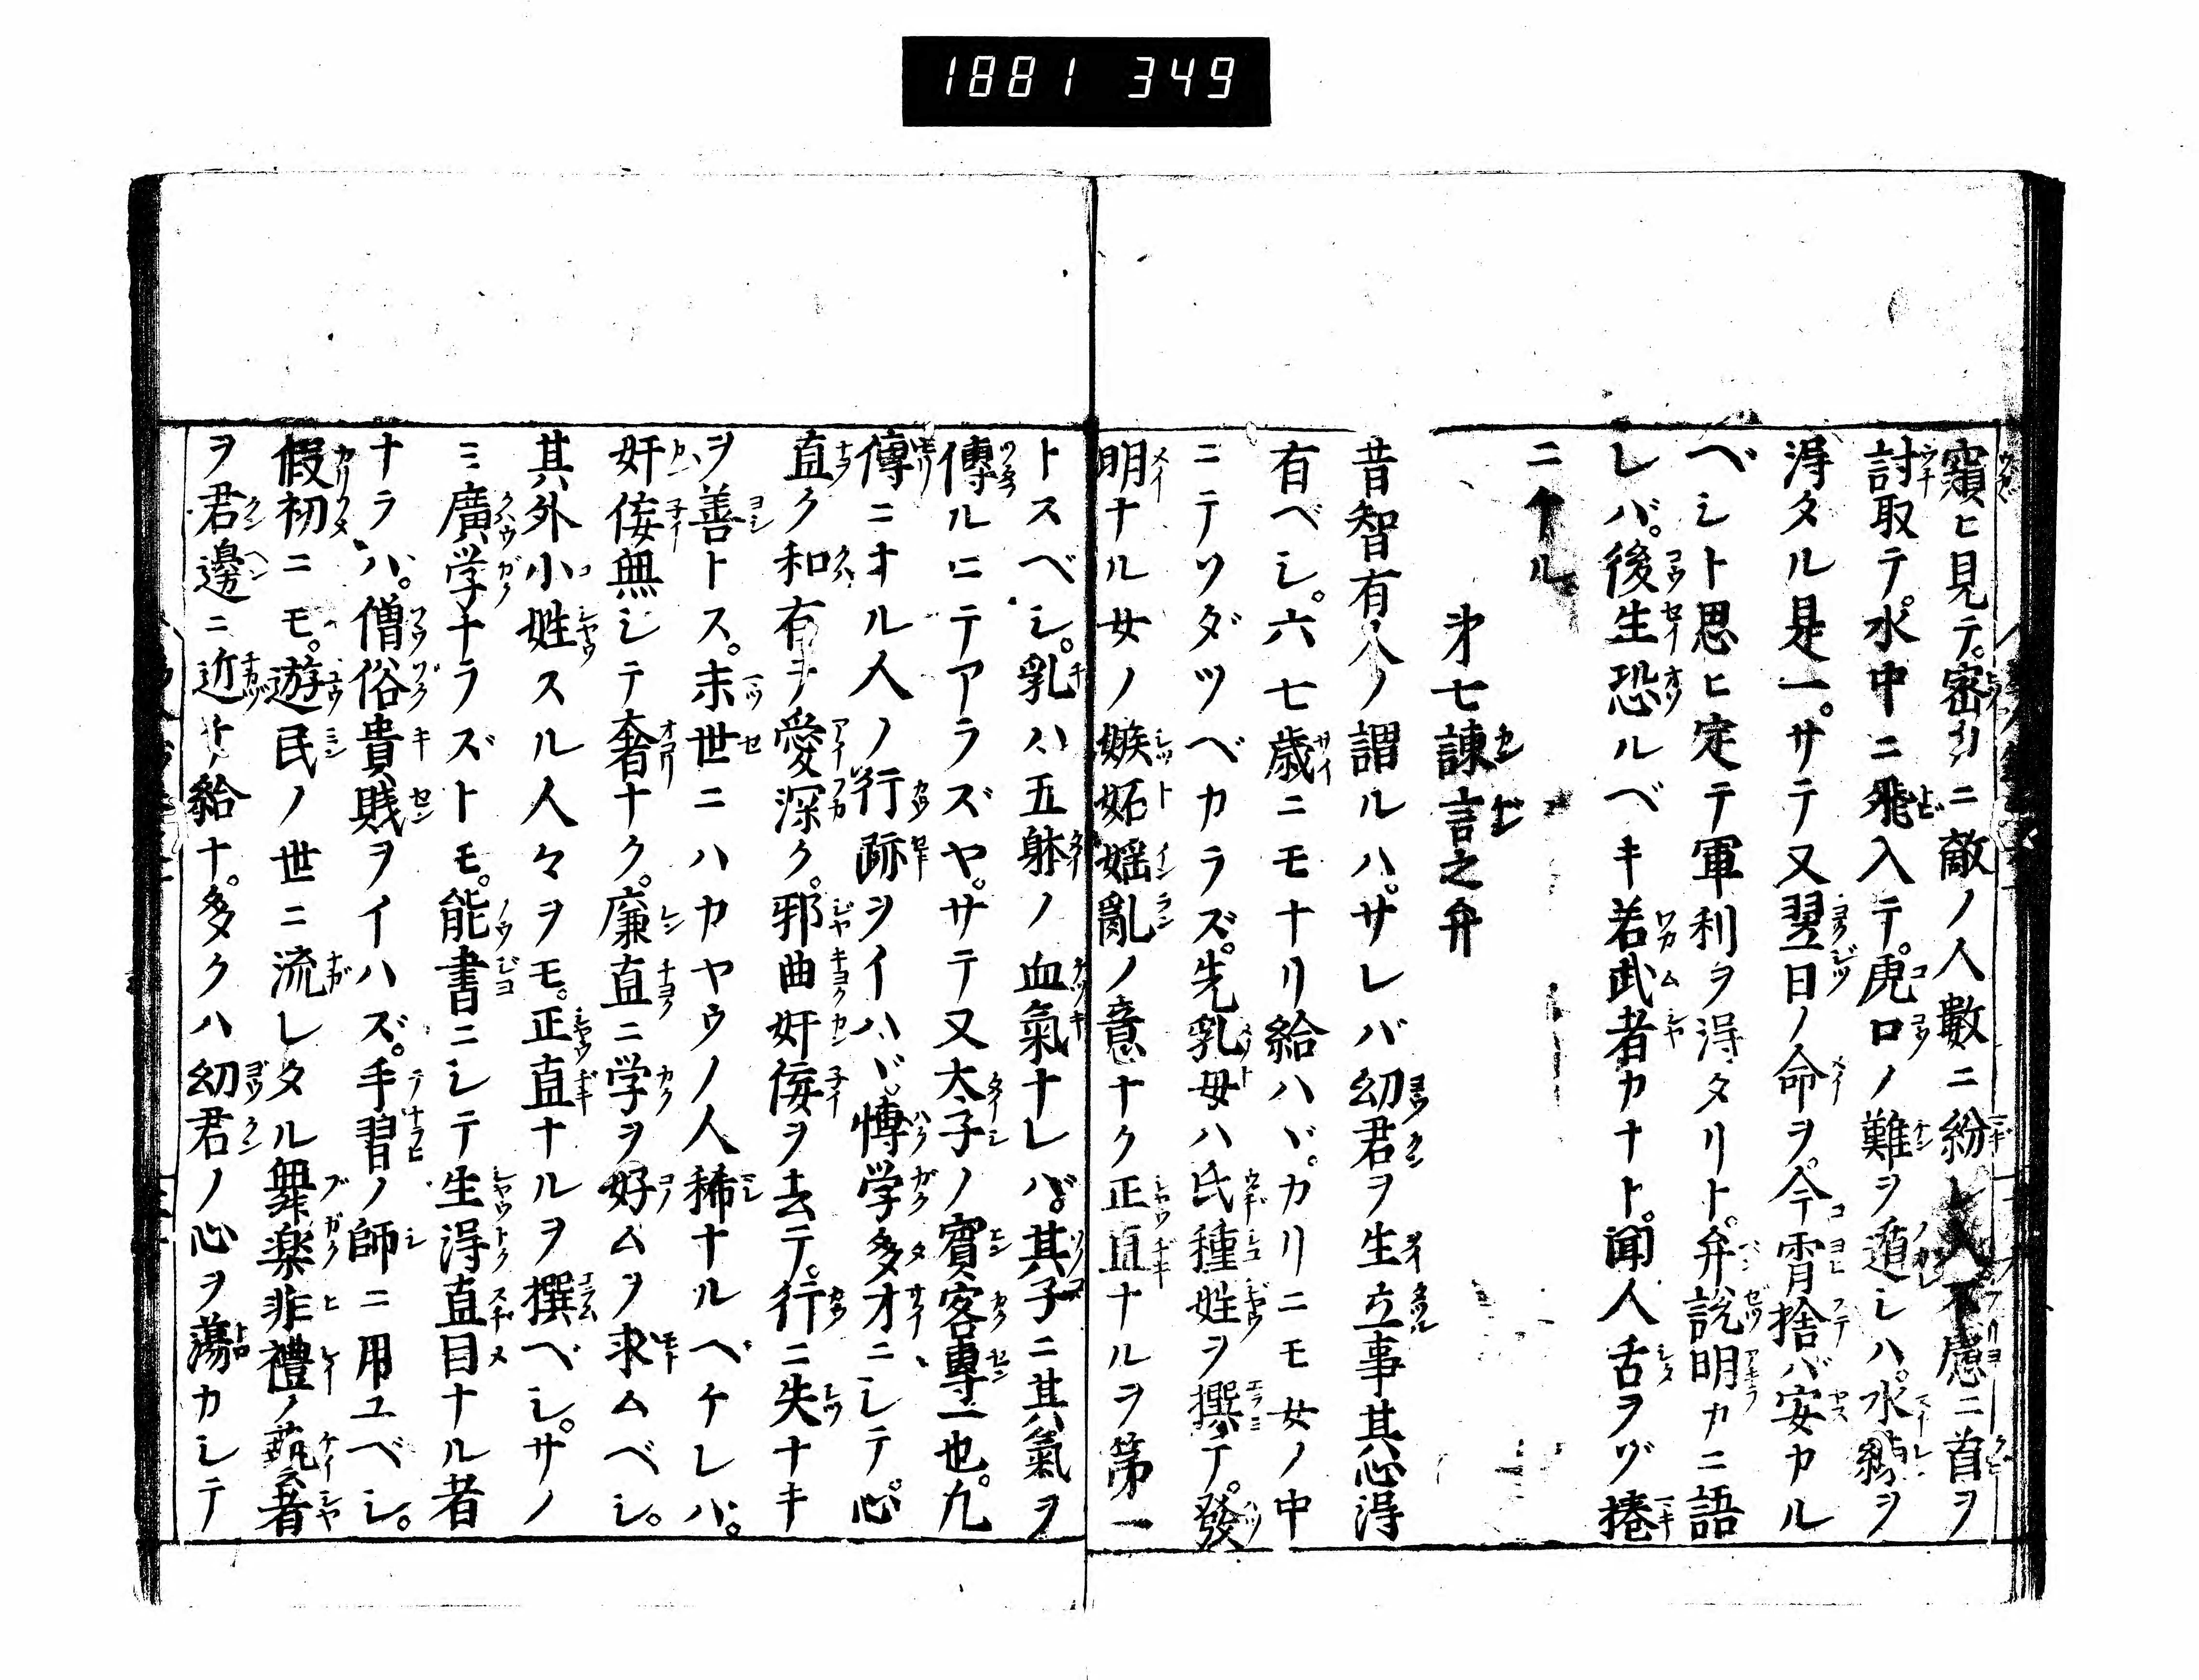 1881 349
窺ヒ見テ。密カニ敵ノ人數ニ紛レ入不慮ニ首ヲ
討取テ。水中ニ飛入テ。虎口ノ難ヲ遁レシハ。水練ヲ
得タル是一。サテ又翌日ノ命ヲ。今宵捨バ安カル
ベシト思ヒ定テ軍利ヲ得タリト。弁說明カニ語
レバ。後生恐ルベキ若武者カナト。聞人舌ヲヅ捲
ニケル
㐧七諌言之弁
昔智有人ノ謂ルハ。サレバ幼君ヲ生立事其心得
有ベシ。六七歳ニモナリ給ハヾ。カリニモ女ノ中
ニテソダツベカラズ。先乳母ハ氏種姓ヲ撰テ。發
明ナル女ノ嫉妬婬亂ノ意ナク正直ナルヲ第一
トスベシ。乳ハ五躰ノ血氣ナレバ。其子ニ其氣ヲ
傳ルニテアラズヤ。サテ又太子ノ賓客專一也。凢
傳ニナル人ノ行跡ヲイハヾ。博学多才ニシテ。心
直ク和有テ愛深ク。邪曲奸侫ヲ去テ。行ニ失ナキ
ヲ善トス。末世ニハカヤウノ人稀ナルベケレバ。
奸侫無シテ奢ナク。廉直ニ学ヲ好ムヲ求ムベシ。
其外小姓スル人々ヲモ。正直ナルヲ撰ベシ。サノ
ミ廣学ナラズトモ。能書ニシテ生得直目ナル者
ナラバ。僧俗貴賎ヲイハズ。手習ノ師ニ用ユベシ。
假初ニモ。遊民ノ世ニ流レタル舞楽非禮ノ藝者
ヲ君邊ニ近ケ給ナ。多クハ幼君ノ心ヲ蕩カシテ